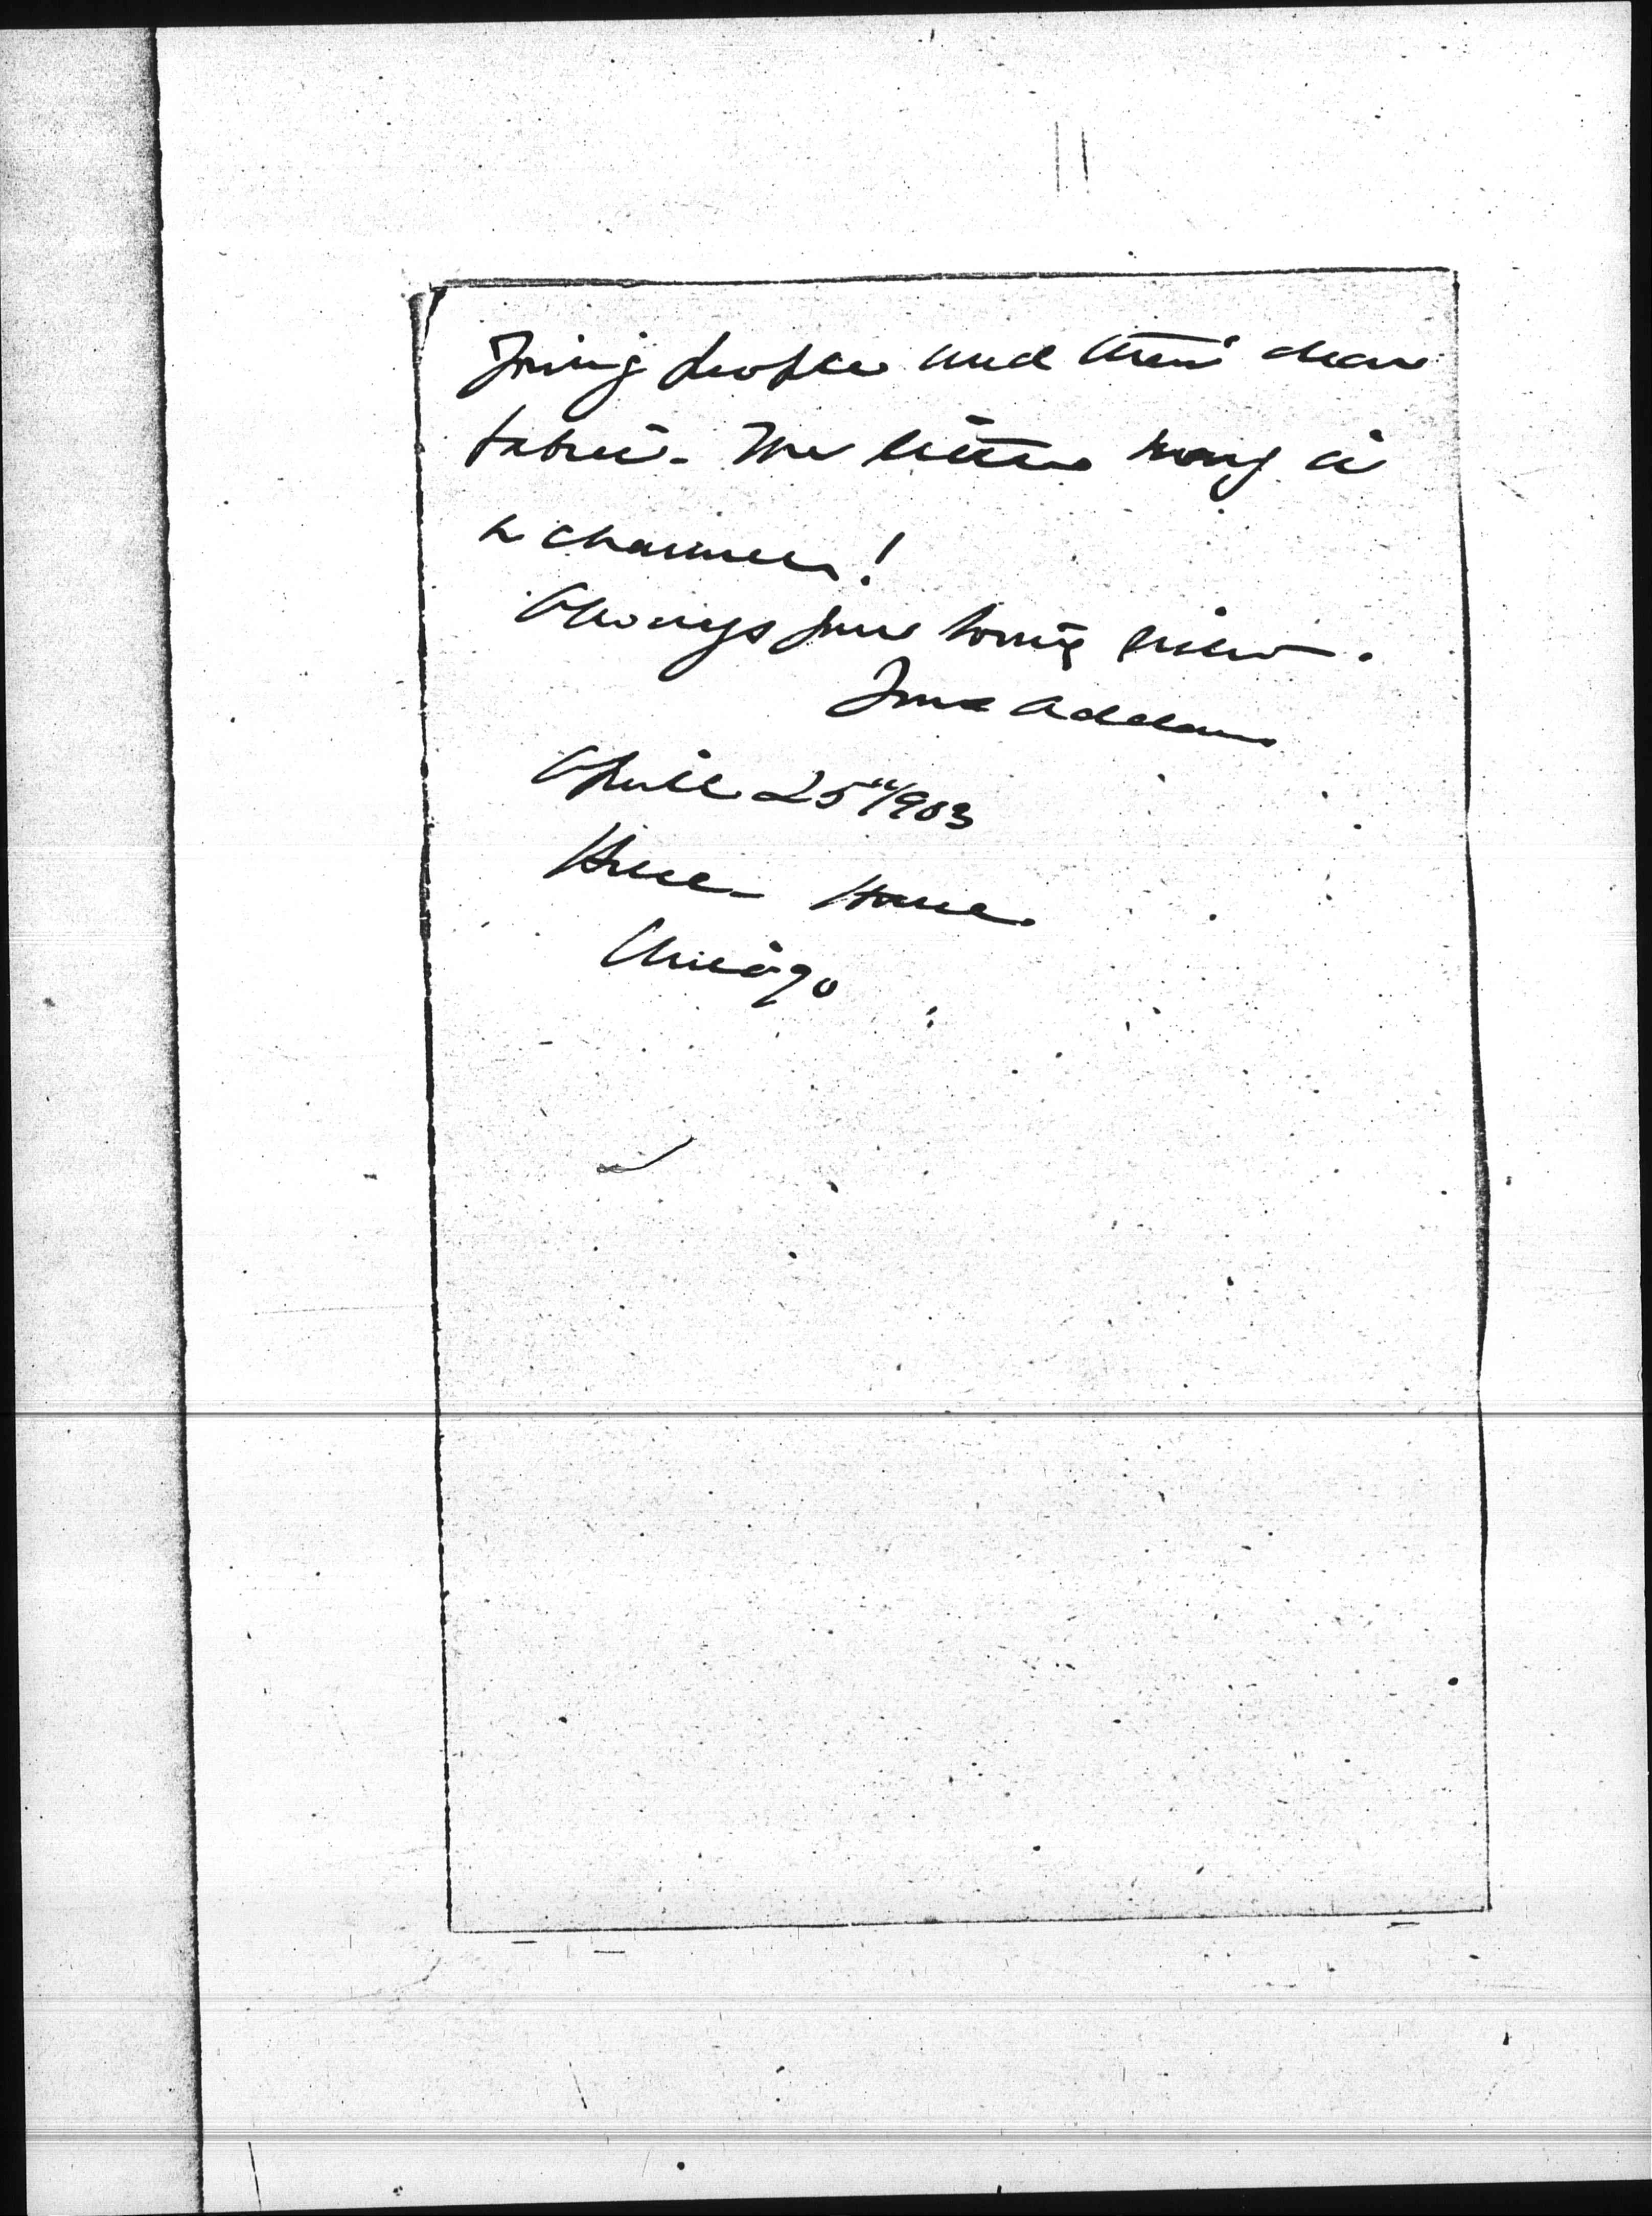 young people and their dear
babies. The little Mary is
a charmer!
Always yours loving friend.
Jane Addams
April 25" 1903
Hull-House
Chicago